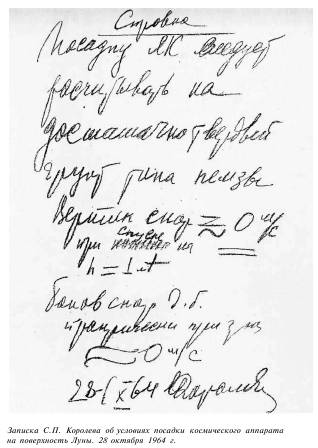 Справка
Посадку ЛК следует
расчитывать на
достаточно твердый
грунт типа пемзы
Вертик скор ≈ 0 м/с
спуске
при на
h = 1 м
Боков скор д.б.
практически при зем
≈ 0 м/с
28-/X 64 Королев
Записка С.П. Королева об условиях посадки космического аппарата
на поверхность Луны. 28 октября 1964 г.